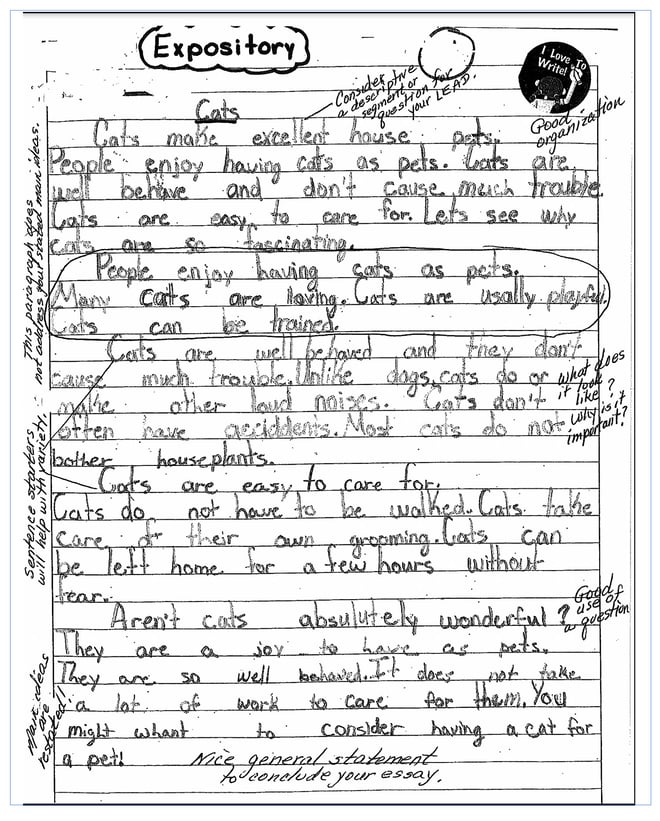 Expository
I Love To
Write!
Consider
a descriptive
segment or
question for
your LEAD.
Good
organization
Cats
Cats make excellent house pets.
People enjoy having cats as pets. Cats are
well behave and don't cause much trouble.
Cats are easy to care for. Lets see why
cats are so fascinating.
This paragraph does
not address your stated main ideas.
People enjoy having cats as pets.
Many cats are loving. Cats are usally playful.
Cats can be trained.
Cats are well behaved and they don't
cause much trouble. Unlike dogs, cats do or
make other loud noises. Cats don't
often have acciddents. Most cats do not
bother houseplants.
What does
it look
like?
Why is it
important?
Sentence starters
will help with variety.
Cats are easy to care for.
Cats do not have to be walked. Cats take
care of their own grooming. Cats can
be left home for a few hours without
fear.
Aren't cats absulutely wonderful?
They are a joy to have as pets.
They are so well behaved. It does not take
a lot of work to care for them. You
might whant to consider having a cat for
a pet!
Good
use of
a question
Main ideas
are
restated!!
Nice general statement
to conclude your essay.